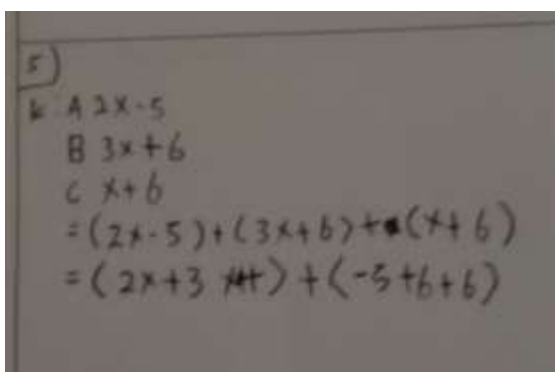 5)
A 2x-5
B 3x+6
C x+6
=(2x-5)+(3x+6)+(x+6)
=(2x+3 ) + (-5+6+6)